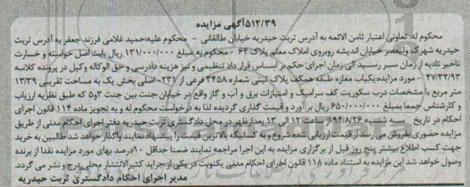 ۵۱۲/۳۹آگهی مزایده
محکوم له: تعاونی اعتبار ثامن الائمه به آدرس تربت حیدریه خیابان طالقانی - محکوم علیه:حمید غلامی فرزند جعفر به آدرس تربت
حیدریه شهرک ولیعصر خیابان اندیشه روبروی املاک معلم پلاک ۶۴ - محکوم به مبلغ ۱۳۱/۰۰۰/۰۰۰ ریال بابت اصل خواسته و خسارت
تاخیر تادیه از زمان سر رسید الی زمان اجرای حکم بر اساس قرار داد تنظیمی و نیز هزینه دادرسی و حق الوکاله وکیل در پرونده کلاسه
۴۷/۳۲/۹۳ - مورد مزایده یکباب مغازه طبقه همکف پلاک ثبتی شماره ۳۴۵۸ فرعی از ۲۳۷- اصلی بخش یک به مساحت تقریبی ۱۳/۳۹
متر مربع با مشخصات درب سکوریت کف سرامیک و امتیازات برق و آب و گاز واقع در خیابان جنت بین جنت ۳و۵ که طبق نظریه ارزیاب
و کارشناس جمعا بمبلغ ۶۵۰/۰۰۰/۰۰۰ ریال بر آورد و قیمت گذاری گردیده لذا به درخواست محکوم له و به تجویز ماده ۱۱۴ قانون اجرای
احکام در تاریخ سه شنبه ۹۴/۸/۲۶ از ساعت ۱۲ الی ۱۳ بعدازظهر در محل دادگستری تربت حیدریه دفتر اجرای احکام مدنی از طریق
مزایده حضوری بفروش می رسد از قیمت ارزیابی شده شروع و به کسانیکه بالاترین قیمت را پیشنهاد نمایند واگذار خواهد شد طالبین به خرید
جهت کسب اطلاع بیشتر پنج روز قبل از برگزاری مزایده به این اجرا مراجعه نمایند ضمنا حداقل ۱۰ درصد بهای مورد مزایده نقدا از برنده
وصول خواهد شد این مزایده به استناد ماده ۱۱۸ قانون اجرای احکام مدنی یکنوبت در یکی از جراید کثیرالانتشار محلی درج و نشر می گردد.
مدیر اجرای احکام دادگستری تربت حیدریه